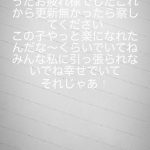 ったお疲れ様でしたこれ
から更新無かったら察し
てください
この子やっと楽になれた
んだな〜くらいでいてね
みんな私に引っ張られな
いでね幸せでいて
それじゃあ！